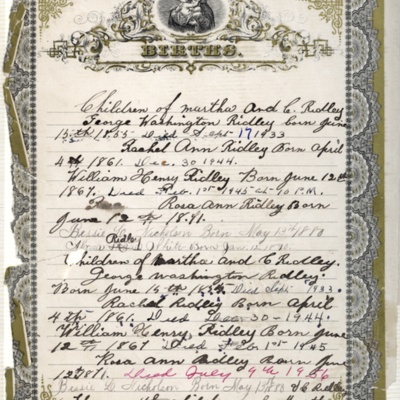 BIRTHS.
Children of Martha And C. Ridley
George Washington Ridley born June
15th 1855 Died Sept 17 1933
Rachel Ann Ridley Born April
4th 1861. Dec. 30 1944.
William Henry Ridley Born June 12th
1867. Died Feb. 1st 1945 P.M.
Rosa Ann Ridley Born
June 12th 1871.
Bessie L. Nicholson Born May 13th 1880
Ridley
White Born Jan.
Children of Martha and C Ridley.
George Washington Ridley.
Born June 15th Died Sept 1933.
Rachel Ridley Born April
4th 1861. Died Dec 30-1944
William Henry, Ridley Born June
12th 1867 Died Feb. 1st 1945
Rosa Ann Ridley Born June
12th 1871. Died July 9th 1956
Bessie L Nicholson Born May 13th 1880 & C Ridley